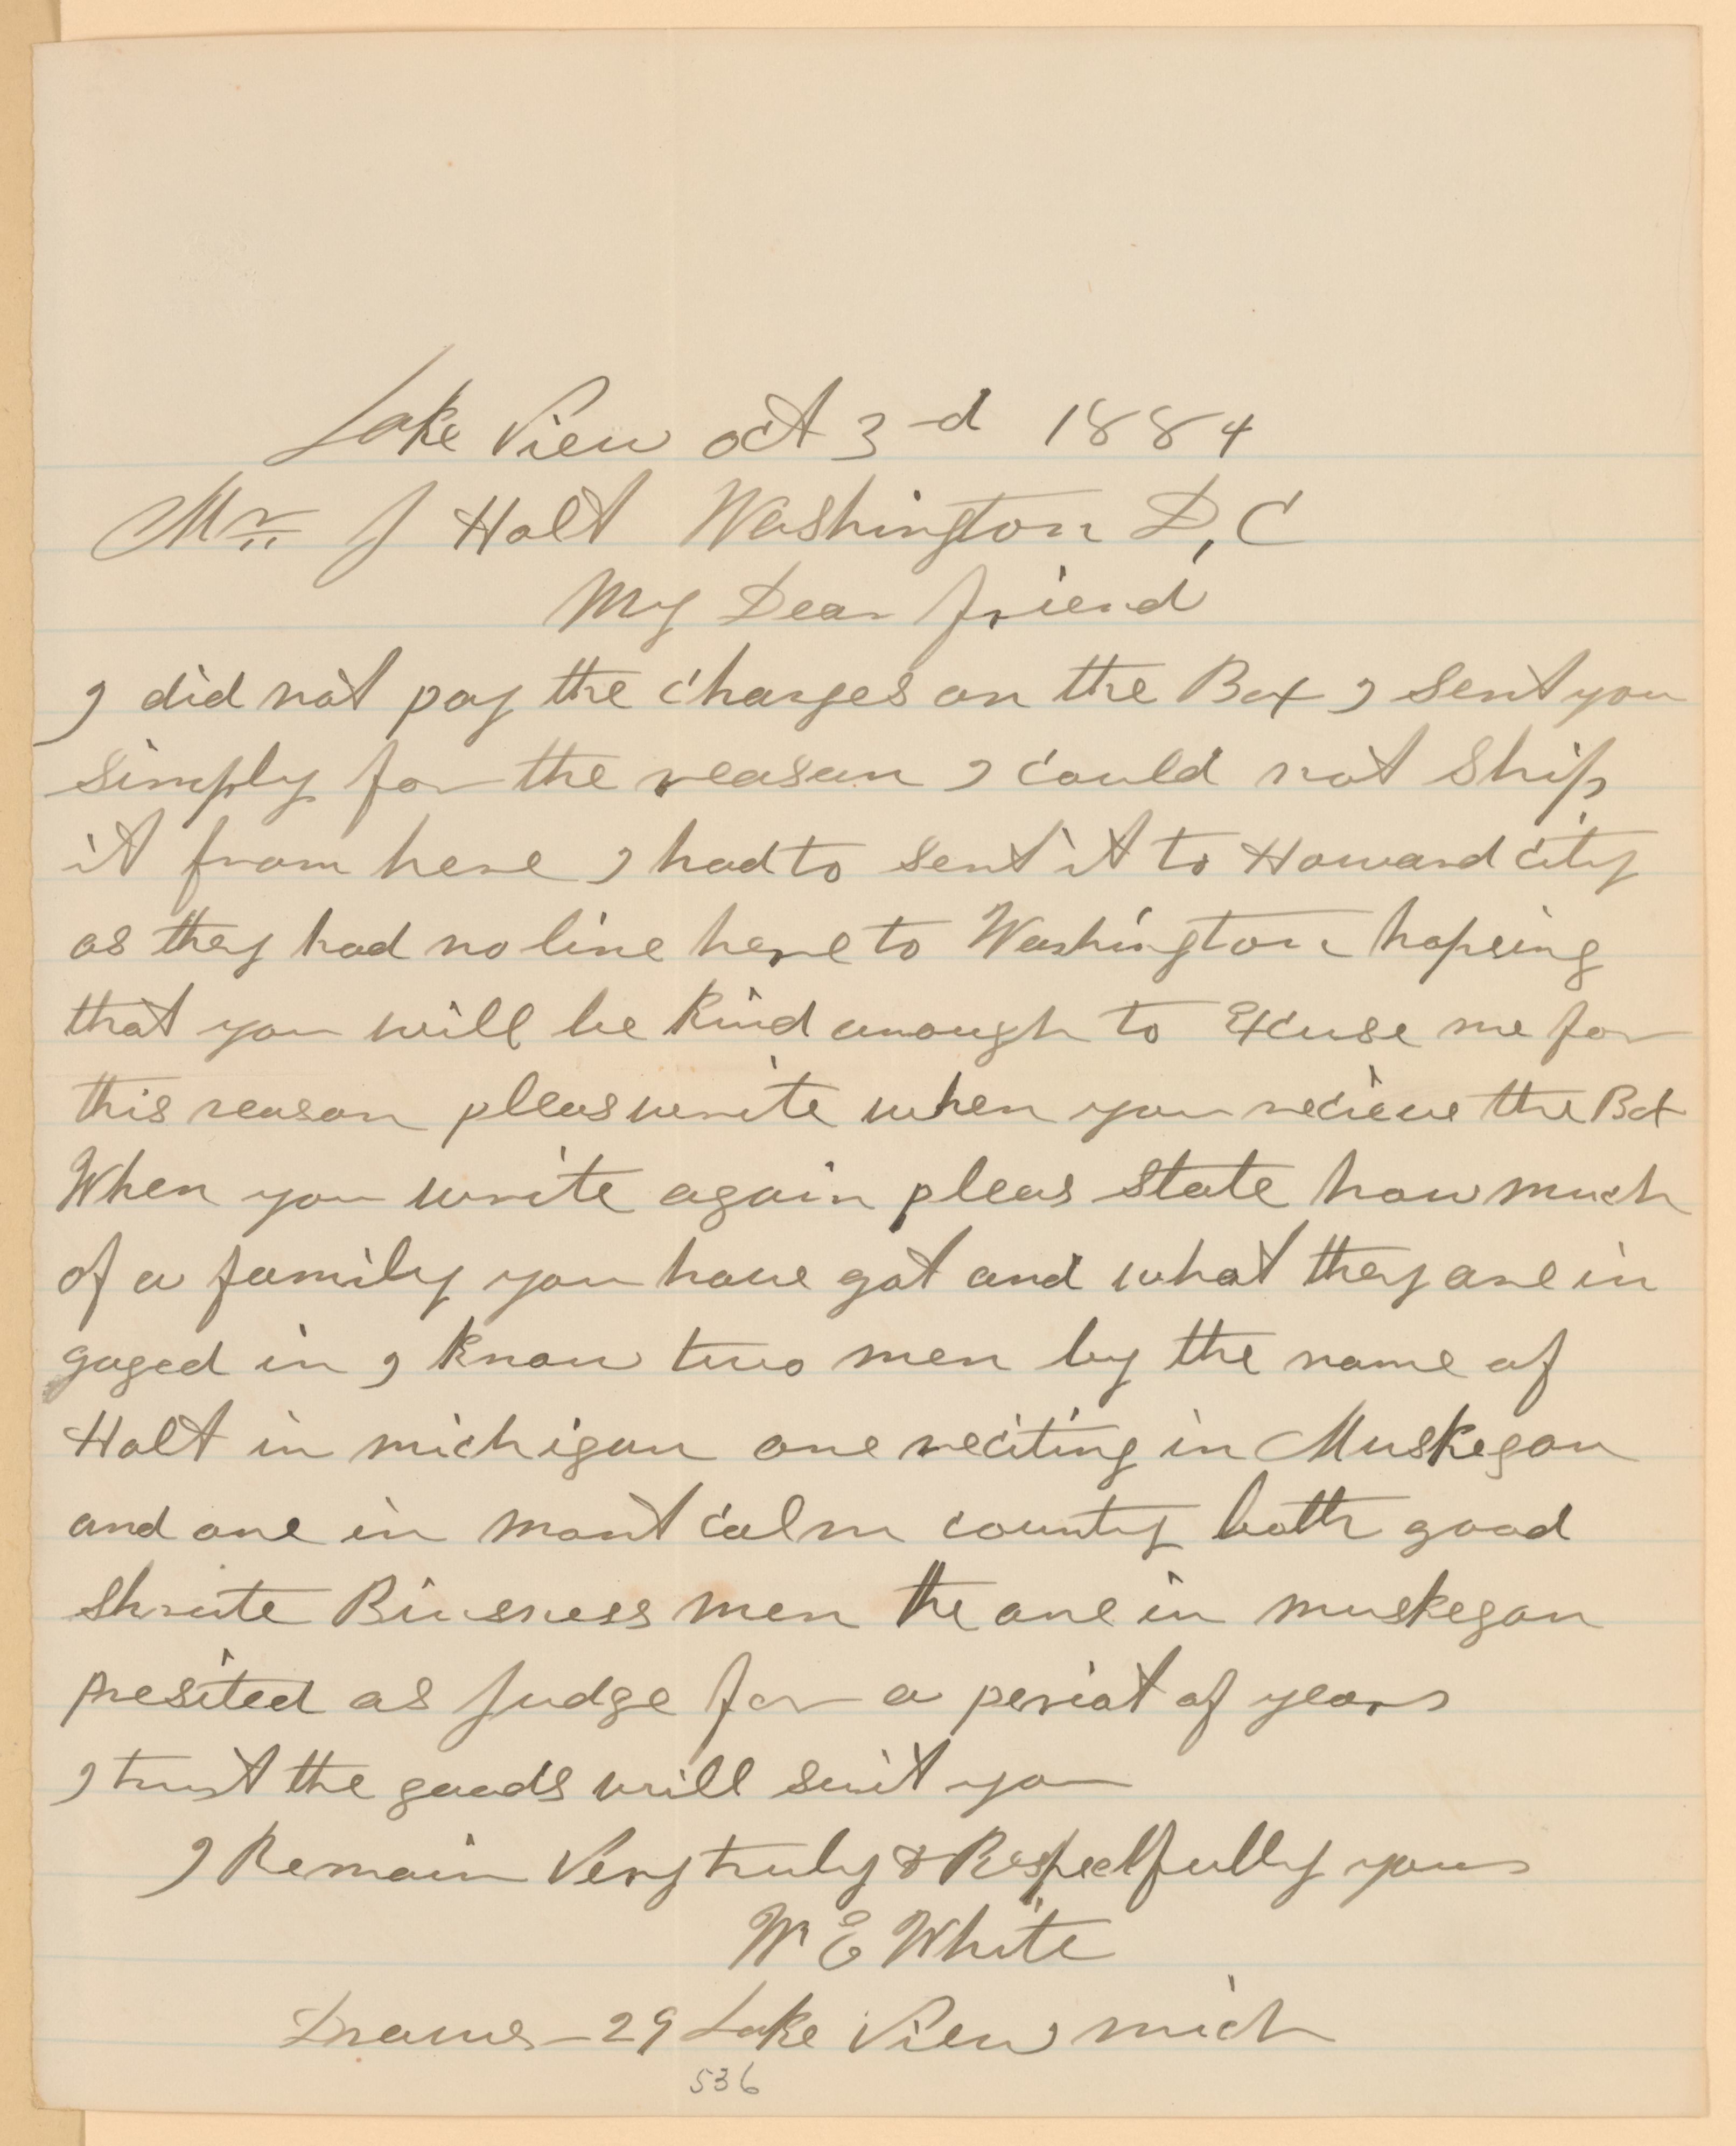 Lake View oct 3-d 1884
Mr. J Holt Washington D,C
My Dear friend
I did not pay the charges on the Box I sent you
simply for the reason I could not ship
it from here I had to sent it to Howard city
as they had no line here to Washington hopeing
that you will be kind anough to Excuse me for
this reason pleas write when you recieve the Box
When you write again pleas state how much
of a family you have got and what they are in
gaged in I know two men by the name of
Holt in michigan one reciting in Muskegon
and one in mont calm county both good
shrute Biusness men the one in muskegon
presited as Judge for a periot of years
I trust the goods will suit you
I Remain Very truly & Respectfully yours
W E White
Drawer - 29 Lake View mich
536